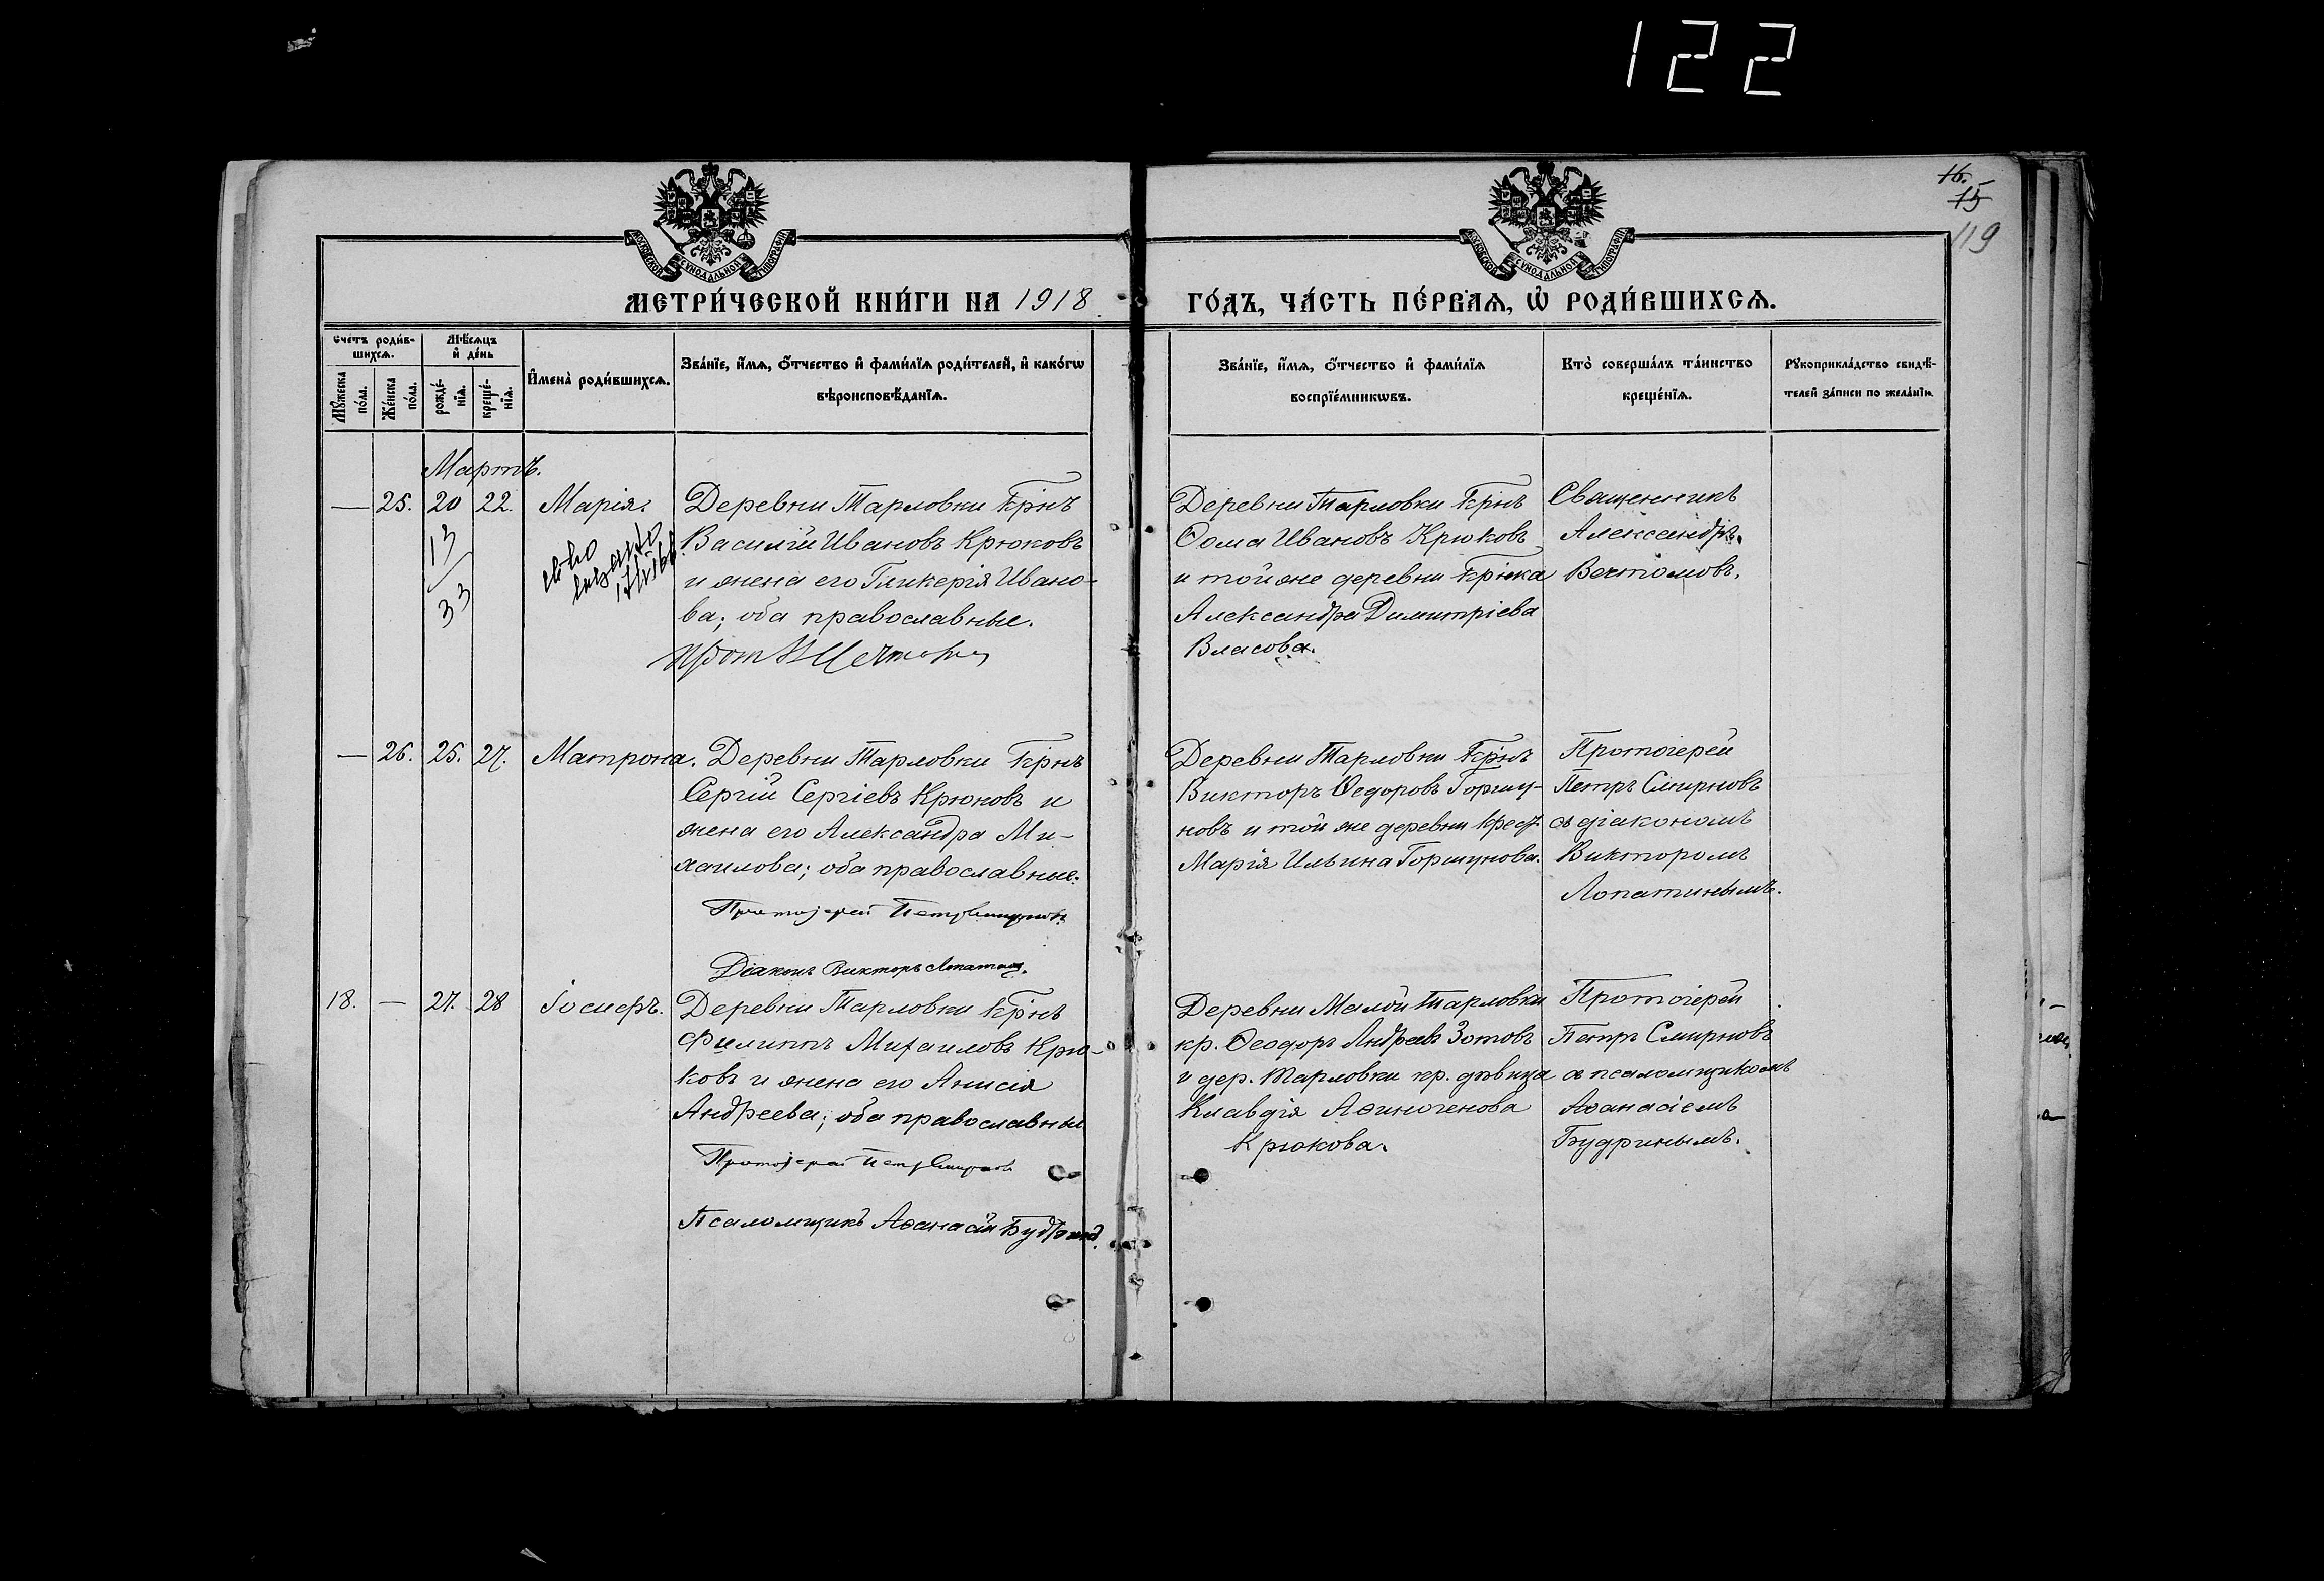 122
16.
15
119
МОСКОВСКОЙ СѴНОДАЛЬНОЙ ТИПОГРАФІИ
МОСКОВСКОЙ СѴНОДАЛЬНОЙ ТИПОГРАФІИ
МЕТРИ́ЧЕСКОЙ КНИ́ГИ НА 1918 ГО́ДЪ, ЧА́СТЬ ПЕ́РВАѦ, Ѡ҆ РОДИ́ВШИХСѦ.
Сче́тъ роди́в-
шихсѧ.
Мꙋ́жеска
по́ла.
Же́нска
по́ла.
Мѣ́сѧцъ
и҆ де́нь
рожде́-
нїѧ.
креще́-
нїѧ.
И҆мена̀ роди́вшихсѧ.
Зва́нїе, и҆́мѧ, ѻ҆́тчество и҆ фами́лїѧ роди́телей, и҆ како́гѡ
вѣроисповѣ́данїѧ.
Зва́нїе, и҆́мѧ, ѻ҆́тчество и҆ фами́лїѧ
воспрїе́мникѡвъ.
Кто̀ соверша́лъ та́инство
креще́нїѧ.
Рꙋкоприкла́дство свидѣ́-
телей за́писи по жела́нїю.
Мартъ.
— 25. 20 22. Марія.
13
33
Деревни Тарловки крнъ
Василій Ивановъ Крюковъ
и жена его Гликерія Ивано-
ва; оба православные.
Деревни Тарловки крнъ
Ѳома Ивановъ Крюковъ
и той же деревни крнка
Александра Димитріева
Власова.
Священникъ
Александръ
Вечтомовъ.
— 26. 25. 27. Матрона.
Деревни Тарловки крнъ
Сергій Сергіевъ Крюковъ и
жена его Александра Ми-
хаилова; оба православные.
Протоіерей Петръ Смирновъ
Діаконъ Викторъ Лопатинъ.
Деревни Тарловки крнъ
Викторъ Ѳедоровъ Горшу-
новъ и той же деревни крест.
Марія Ильина Горшунова.
Протоіерей
Петръ Смирновъ
съ діакономъ
Викторомъ
Лопатинымъ.
18. — 27. 28 Іосифъ.
Деревни Тарловки крнъ
Филиппъ Михаиловъ Крю-
ковъ и жена его Анисія
Андреева; оба православные
Протоіерей Петръ Смирновъ
Псаломщикъ Аѳанасій Будринъ.
Деревни Малой Тарловки
кр. Ѳеодоръ Андреевъ Зотовъ
и дер. Тарловки кр. дѣвица
Клавдія Аѳиногенова
Крюкова.
Протоіерей
Петръ Смирновъ
съ псаломщикомъ
Аѳанасіемъ
Будринымъ.